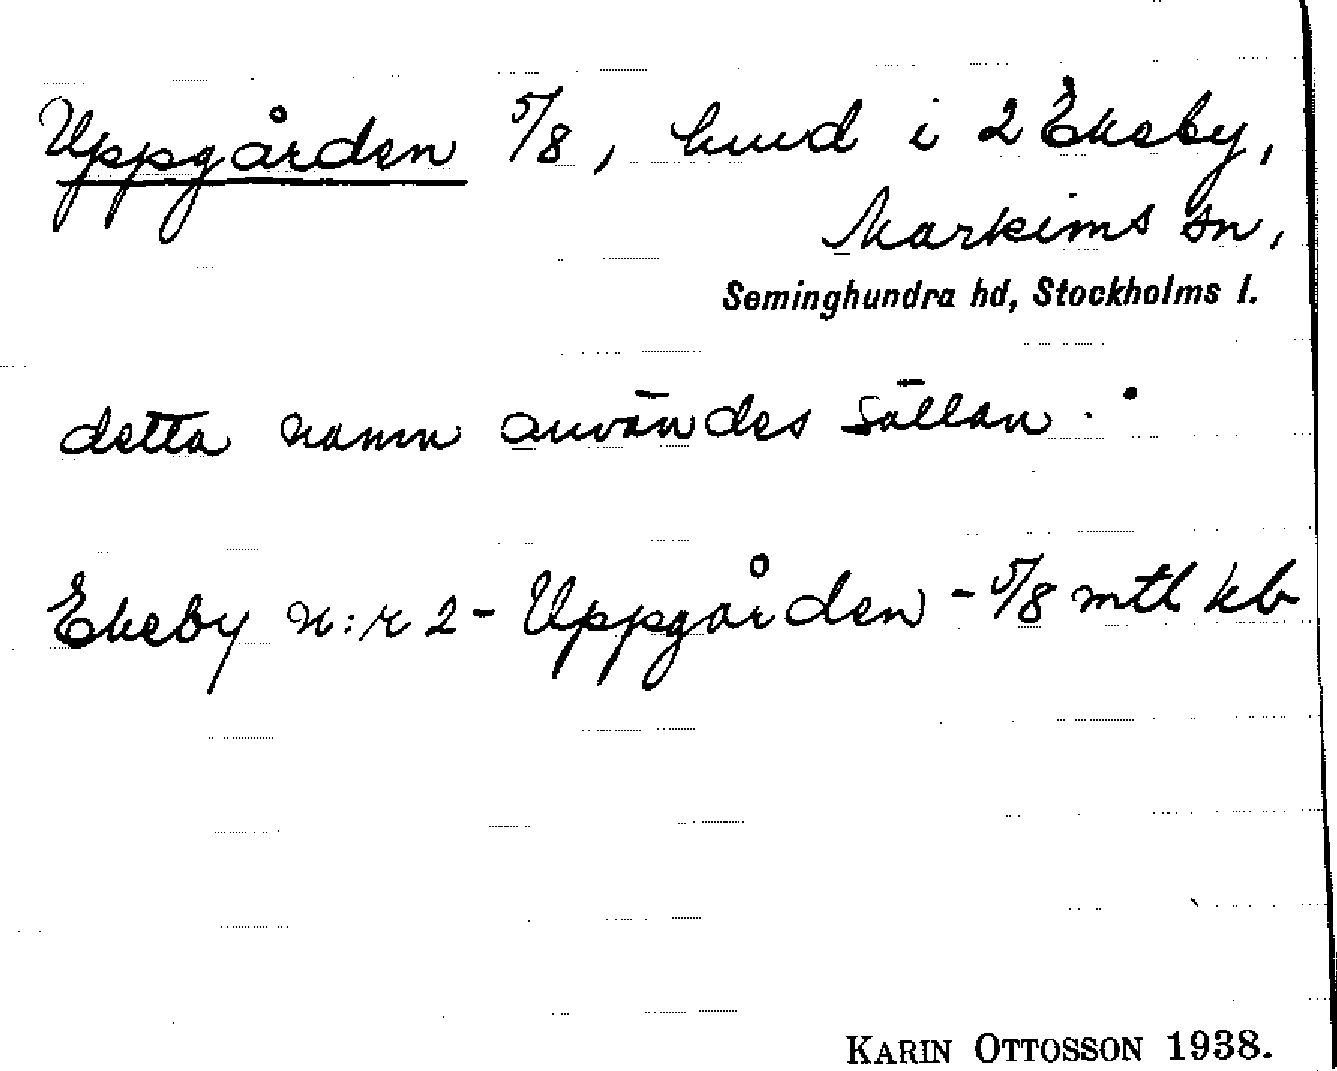 Uppgården 5/8, hmd i 2 Ekeby,
Markims sn,
Seminghundra hd, Stockholms l.
detta namn användes sällan.
Ekeby N:r 2 - Uppgården - 5/8 mtl kb
KARIN OTTOSSON 1938.